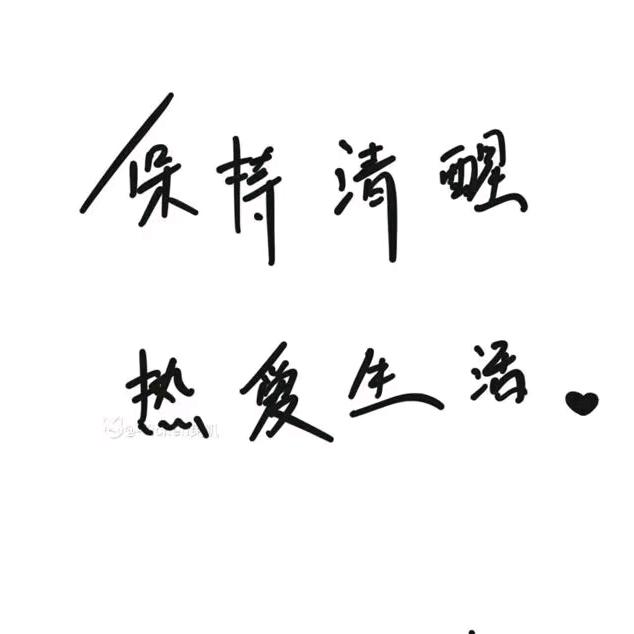 保持清醒
热爱生活